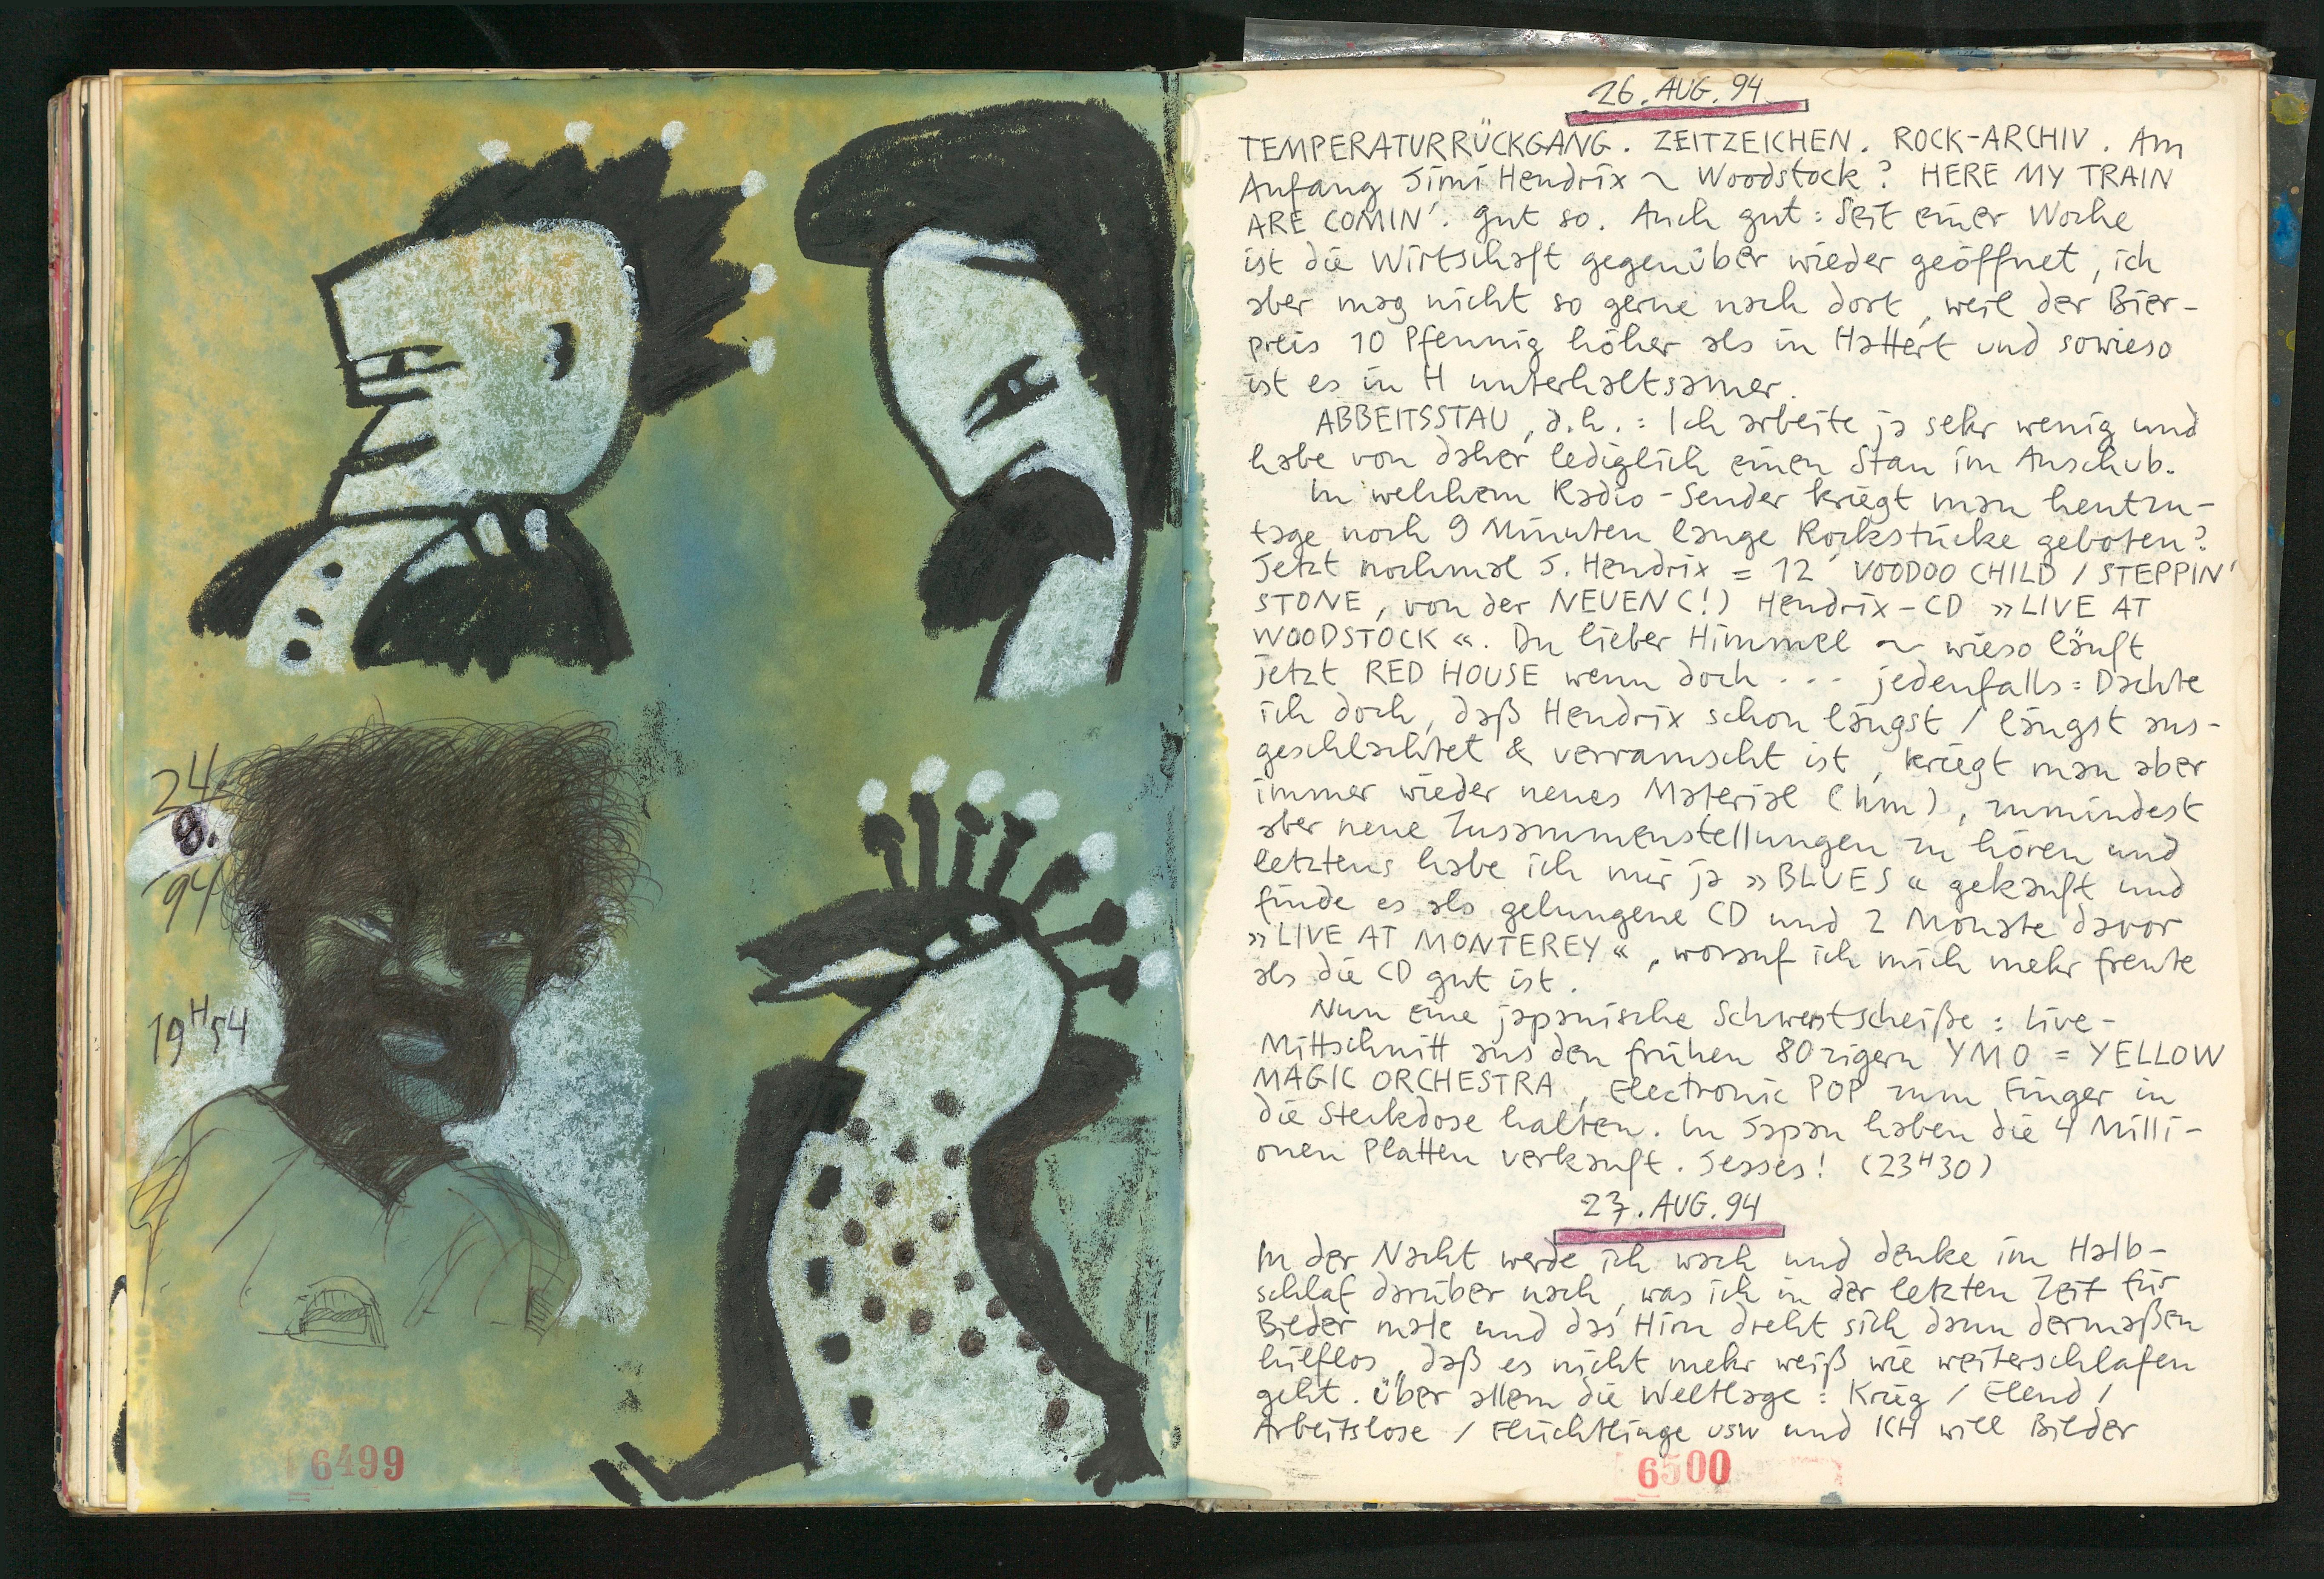 24.
8.
94
19H54
6499
26. AUG. 94
TEMPERATURRÜCKGANG. ZEITZEICHEN. ROCK-ARCHIV. Am
Anfang Jimi Hendrix ~ Woodstock? HERE MY TRAIN
ARE COMIN'. Gut so. Auch gut: Seit einer Woche
ist die Wirtschaft gegenüber wieder geöffnet, ich
aber mag nicht so gerne nach dort, weil der Bier-
preis 10 Pfennig höher als in Hattert und sowieso
ist es in H unterhaltsamer.
ABBEITSSTAU, d.h.: Ich arbeite ja sehr wenig und
habe von daher lediglich einen Stau im Anschub.
In welchem Radio-Sender kriegt man heutzu-
tage noch 9 Minuten lange Rockstücke geboten?
Jetzt nochmal J. Hendrix = 12' VOODOO CHILD / STEPPIN'
STONE, von der NEUEN(!) Hendrix-CD »LIVE AT
WOODSTOCK«. Du lieber Himmel ~ wieso läuft
jetzt RED HOUSE wenn doch ... jedenfalls: Dachte
ich doch, daß Hendrix schon längst / längst aus-
geschlachtet & verramscht ist, kriegt man aber
immer wieder neues Material (hm), zumindest
aber neue Zusammenstellungen zu hören und
letztens habe ich mir ja »BLUES« gekauft und
finde es als gelungene CD und 2 Monate davor
»LIVE AT MONTEREY«, worauf ich mich mehr freute
als die CD gut ist.
Nun eine japanische Schwerstscheiße: Live-
Mittschnitt aus den frühen 80zigern YMO = YELLOW
MAGIC ORCHESTRA, Electronic POP zum Finger in
die Steckdose halten. In Japan haben die 4 Milli-
onen Platten verkauft. Jesses! (23H30)
27. AUG. 94
In der Nacht werde ich wach und denke im Halb-
schlaf darüber nach, was ich in der letzten Zeit für
Bilder male und das Hirn dreht sich dann dermaßen
hilflos, daß es nicht mehr weiß wie weiterschlafen
geht. Über allem die Weltlage: Krieg / Elend /
Arbeitslose / Flüchtlinge usw und ICH will Bilder
6500